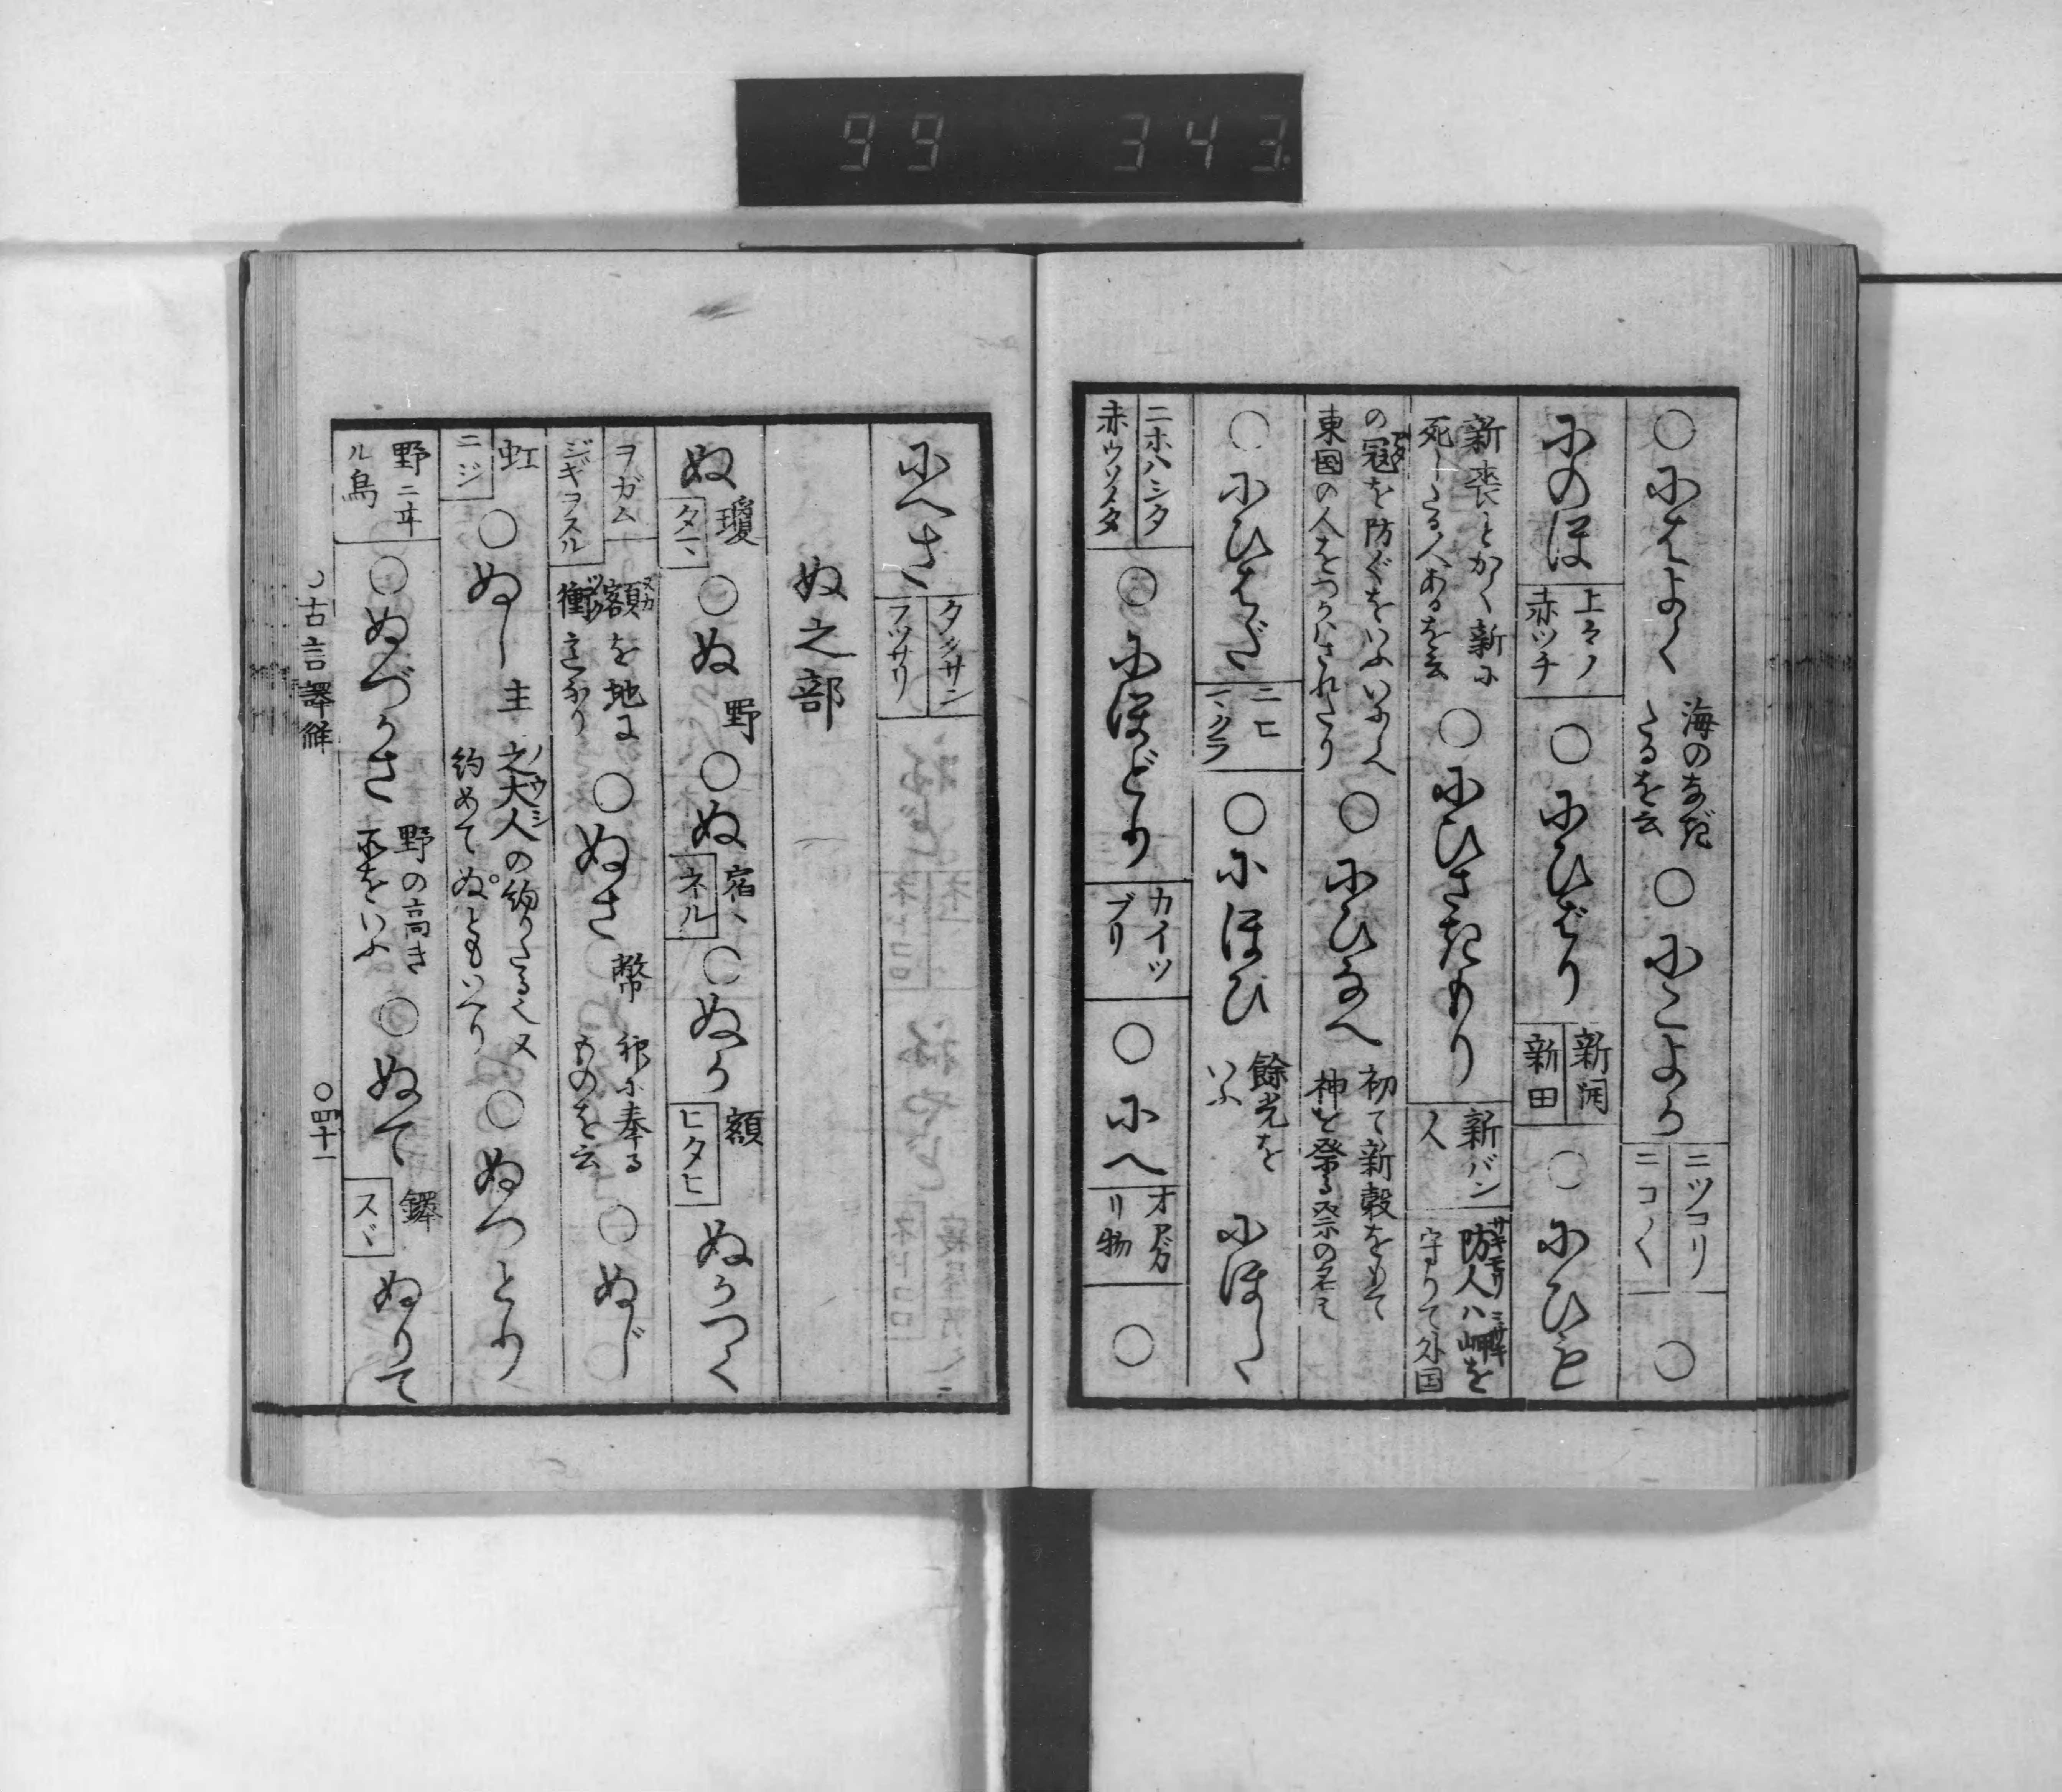 99 343
○にはよく 海のなだ たるを云 ○にこよか ニツコリ ニコ〱 ○
にのほ 上々ノ 赤ツチ ○にひばり 新開 新田 ○にひも
新喪とかく新に 死したる人あるを云 ○にひさきもり 新バン 人 防人ハ岬を 守りて外国
の寇を防ぐをいふいふへ 東国の人をつかはされたり ○にひなへ 初て新穀をもて 神を祭る祭の名え
○にひはだ ニヒ マクラ ○にほひ 餘光を いふ にほした
ニホハシタ 赤ウソメタ ○にほどり カイツ ブリ ○にへ オアガ リ物 ○
にへさ タクサン フツサリ
ぬ之部
ぬ 瓊 タマ ○ぬ 野 ○ぬ 宿ヽ ネル ○ぬか 額 ヒタヒ ぬかつく
ヲガム ジギヲスル 額を地に 衝也 ○ぬさ 幣 神に奉る ものを云 ○ぬじ
虹 ニジ ○ぬし 主 之大人の約りたる也又 約めてぬ。ともいへり ○ぬつとり
野ニヰ ル鳥 ○ぬづかさ 野の高き 所をいふ ○ぬて 鐸 スヾ ぬりて
古言譯解 ○四十一